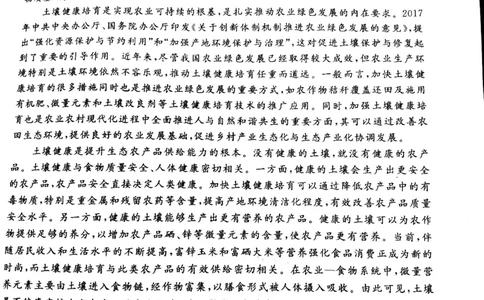 土壤健康培育是实现农业可持续的根基,是扎实推动农业绿色发展的内在要求。2017
年中共中央办公厅、国务院办公厅印发《关于创新体制机制推进农业绿色发展的意见》,提
出“强化资源保护与节约利用”和“加强产地环境保护与治理”,这对促进土壤保护与修复起
到了重要的引导作用。近年来,尽管我国农业绿色发展已经取得较大成效,但农业生产环
境特别是土壤环境依然不容乐观,推动土壤健康培育任重而道远。一般而言,加快土壤健
康培育的很多措施同时也是推进农业绿色发展的重要方式,如农作物秸秆覆盖还田及施用
有机肥、微量元素和土壤改良剂等土壤健康培育技术的推广应用。同时,加强土壤健康培
育也是农业农村现代化进程中全面推进人与自然和谐共生的重要方面,其可以通过改善农
田生态环境,提供良好的农业发展基础,促进乡村产业生态化与生态产业化协调发展。
土壤健康是提升生态农产品供给能力的根本。没有健康的土壤,就没有健康的农产
品。土壤健康与食物质量安全、人体健康密切相关。一方面,健康的土壤会生产出更安全
的农产品,农产品安全直接决定人类健康。加快土壤健康培育可以通过降低农产品中的有
毒物质,特别是重金属和残留农药等含量,提高产地环境清洁化程度,有效改善农产品质量
安全水平。另一方面,健康的土壤能够生产出更有营养的农产品。健康的土壤可以为农作
物提供足够的养分,以增加农产品硒、锌等微量元素的含量,使农产品更有营养。当前,伴
随居民收入和生活水平的不断提高,富锌玉米和富硒大米等营养强化食品消费正成为新的
时尚,而土壤健康培育与此类农产品的有效供给密切相关。在农业—食物系统中,微量营
养元素主要由土壤进入食物链,经作物富集,以膳食形式被人体摄入吸收。由此可见,土壤